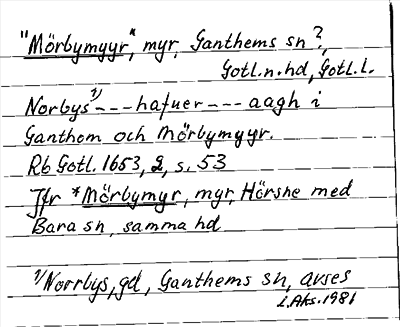 "Mörbymyyr", myr, Ganthems sn?,
Gotl.n.hd, Gotl.l.
Norbys¹⁾---hafuer---aagh i
Ganthem och Mörbymyyr.
Rb Gotl. 1653, 2, s. 53
Jfr *Mörbymyr, myr, Hörsne med
Bara sn, samma hd
¹⁾Norrbys, gd, Ganthems sn, avses
L.Aks. 1981